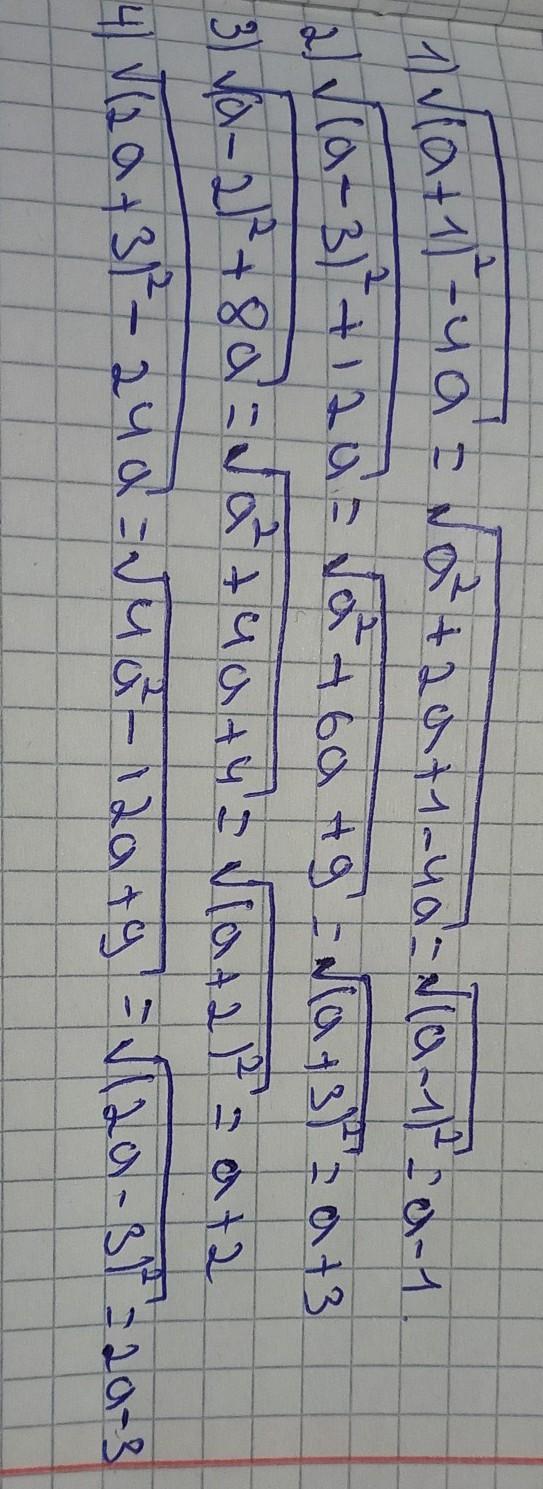 1) √(a+1)² - 4a = √a² + 2a + 1 - 4a = √(a-1)² = a-1.
2) √(a-3)² + 12a = √a² + 6a + 9 = √(a+3)² = a+3
3) √(a-2)² + 8a = √a² + 4a + 4 = √(a+2)² = a+2
4) √(2a+3)² - 24a = √4a² - 12a + 9 = √(2a-3)² = 2a-3